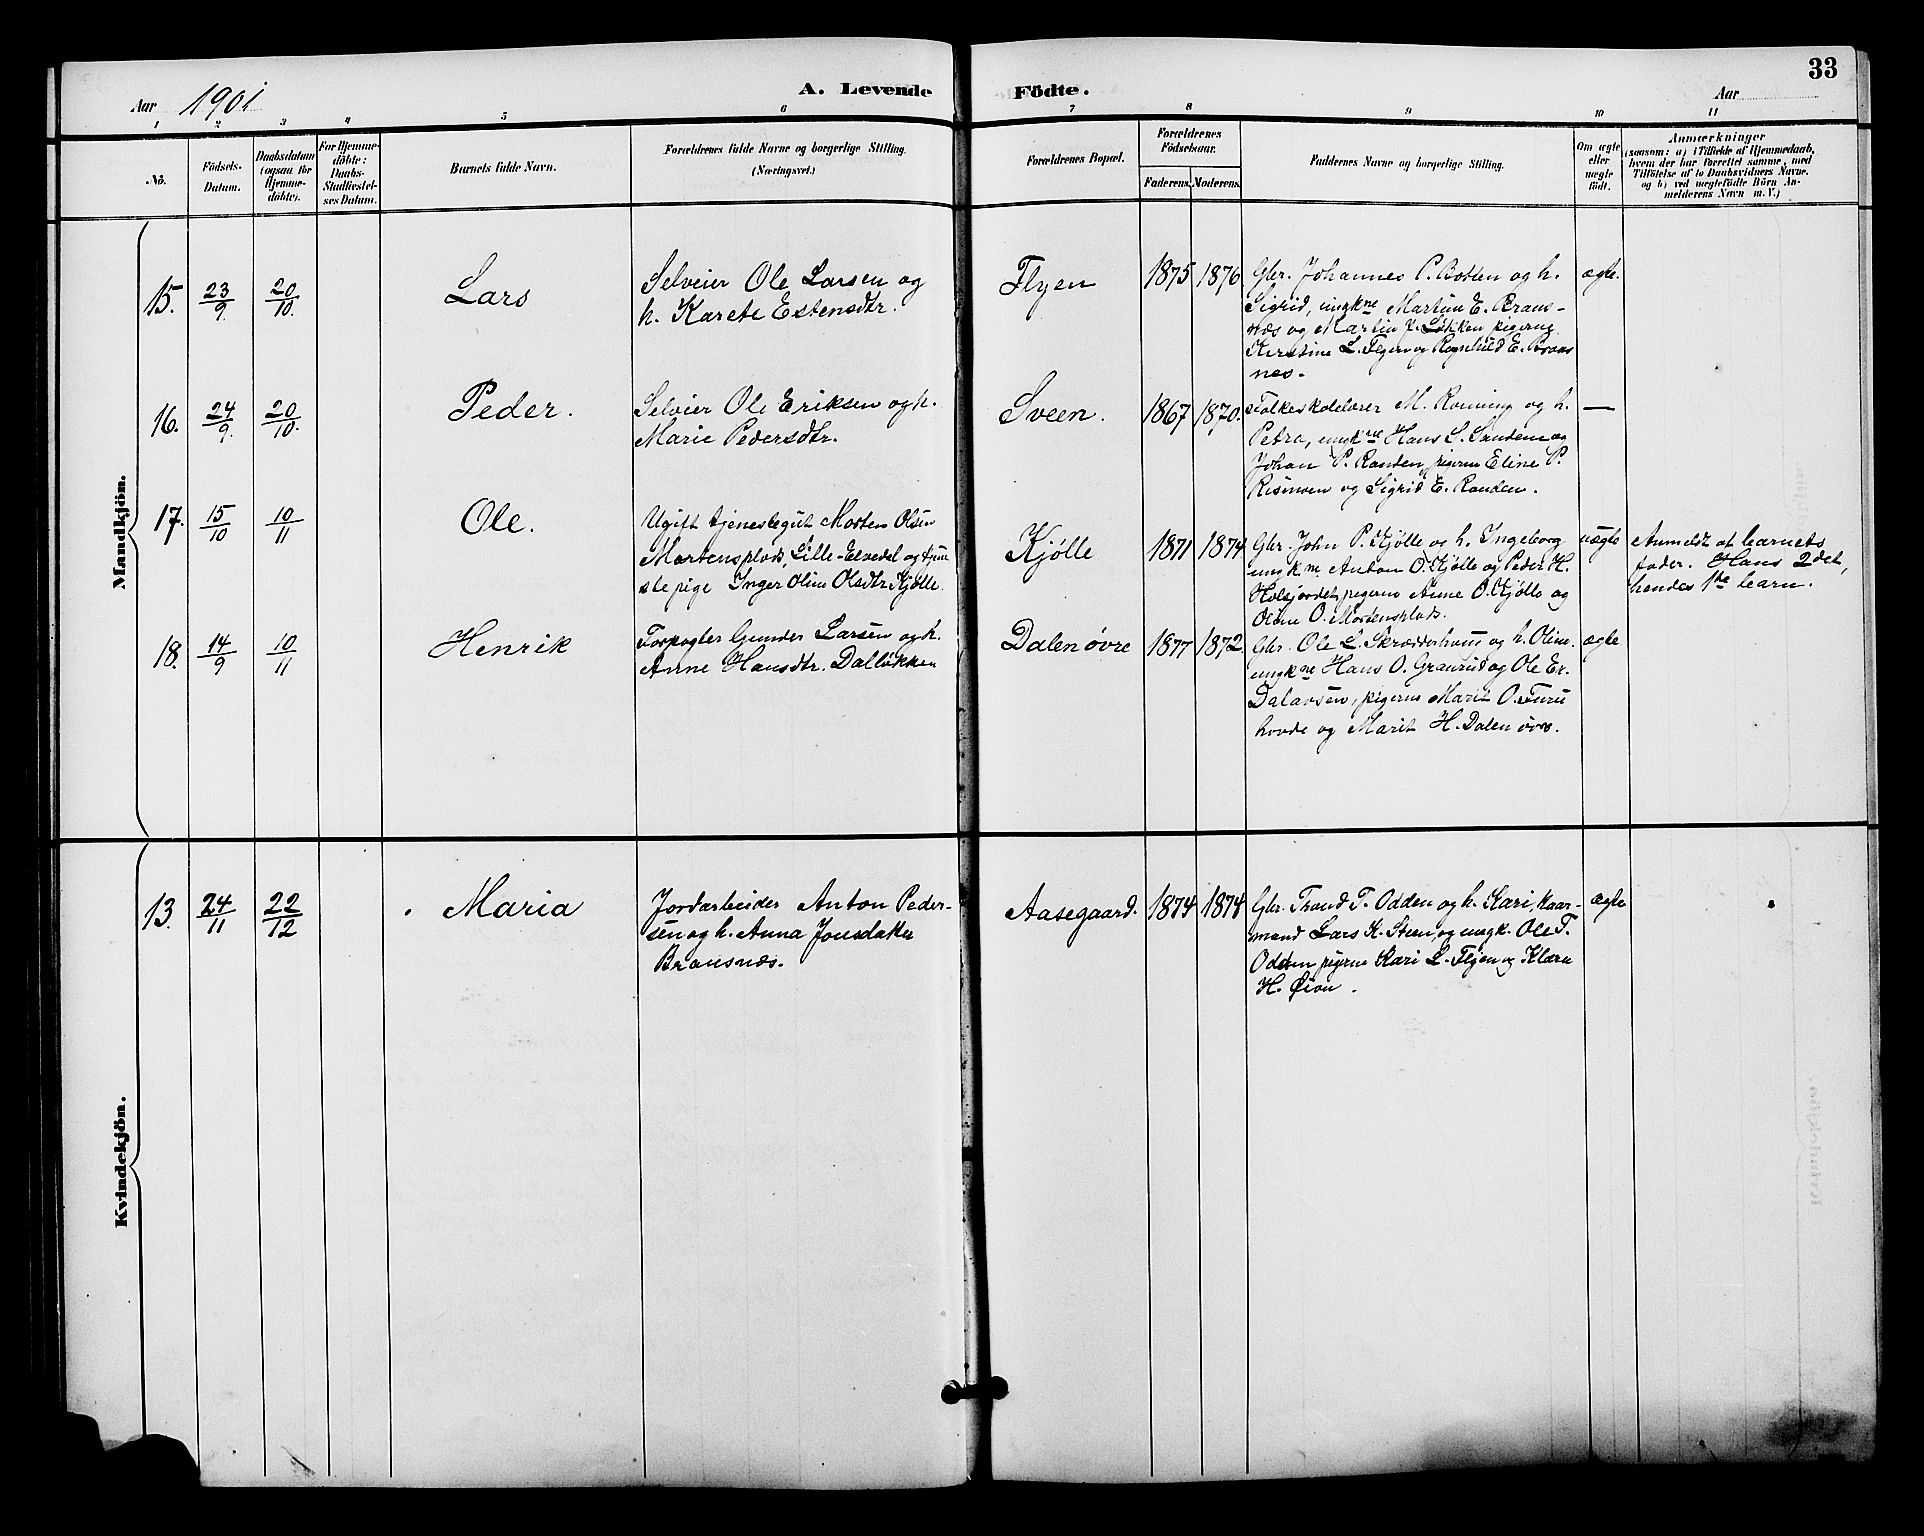 33
Aar 1901 A. Levende Födte. Aar
1 2 3 4 5 6 7 8 9 10 11
No.
Födsels-
Datum.
Daabsdatum
(ogsaa for
Hjemme-
döbte).
For Hjemme-
döbte:
Daabs-
Stadfæstel-
ses Datum.
Barnets fulde Navn.
Forældrenes fulde Navne og borgerlige Stilling.
(Næringsvei.)
Forældrenes Bopæl.
Forældrenes
Födselsaar.
Faderens. Moderens.
Faddernes Navne og borgerlige Stilling.
Om ægte
eller
uægte
födt.
Anmærkninger
(saasom: a) i Tilfælde af Hjemmedaab,
hvem der har forrettet samme, med
Tilföielse af to Daabsvidners Navne.
og b) ved uægtefödte Börn An-
melderens Navn m. V.)
Mandkjön.
15. 23/9 20/10. Lars
Selveier Ole Larsen og
h. Karete Estensdtr.
Flyen 1875 1876
Gbr. Johannes P. Botten og h.
Sigrid, ungkne Martin E. Brans-
næs og Martin J. Løkken pigerne
Kirstine L. Flyen og Ragnhild E. Brans
nes.
ægte.
16. 24/9. 20/10. Peder.
Selveier Ole Eriksen og h.
Marie Pedersdtr.
Sveen. 1867 1870.
Folkeskolelærer M. Rønning og h.
Petra, ungkne Hans S. Sanden og
Johan P. Randen, pigerne Eline P.
Rismoen og Sigrid E. Randen.
—
17. 15/10 10/11 Ole.
Ugift tjenestegut Morten Olsen
Mortensplads, Lille-Elvedal og tjene
stepige Inger Oline Olsdtr Kjølle.
Kjølle 1871 1874
Gbr. John P. Kjølle og h. Ingeborg
ungkne Anton O. Kjølle og Peder H.
pigerne Anne O. Kjølle og
Oline O. Mortensplads.
uægte
Anmeldt af barnets
fader. Hans 2det,
hendes 1ste barn.
18. 14/9 10/11 Henrik
Forpagter Gunder Larsen og h.
Anne Hansdtr. Dalløkken
Dalen øvre 1877 1872
Gbr. Ole L. Skrædderhaug og h. Oline.
ungkne Hans O. Graurud og Ole Er.
Dalaasen, pigerne Marit O. Furu
hovde og Marit H. Dalen øvre.
ægte
Kvindekjön.
13. 24/11 22/12 Maria
Jordarbeider Anton Peder-
sen og h. Anna Jonsdatter
Bransnæs.
Aasegaard. 1874 1874
Gbr. Trond T. Odden og h. Kari, kaar-
mand Lars K. Steen, og ungk. Ole T.
Odden pigerne Kari L. Flyen og Klara
H. Øien.
ægte